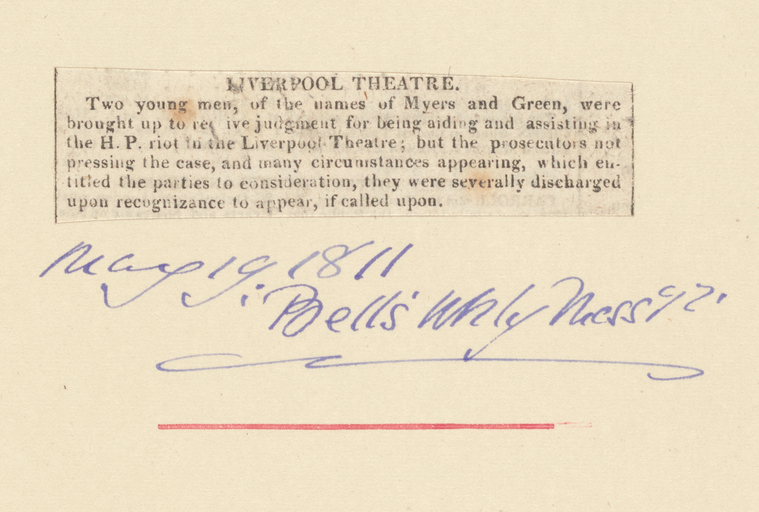 LIVERPOOL THEATRE.
Two young men, of the names of Myers and Green, were
brought up to rec ive judgment for being aiding and assisting in
the H. P. riot in the Liverpool Theatre; but the prosecutors not
pressing the case, and many circumstances appearing, which en-
titled the parties to consideration, they were severally discharged
upon recognizance to appear, if called upon.
May 19, 1811
Bell's Wkly Mess